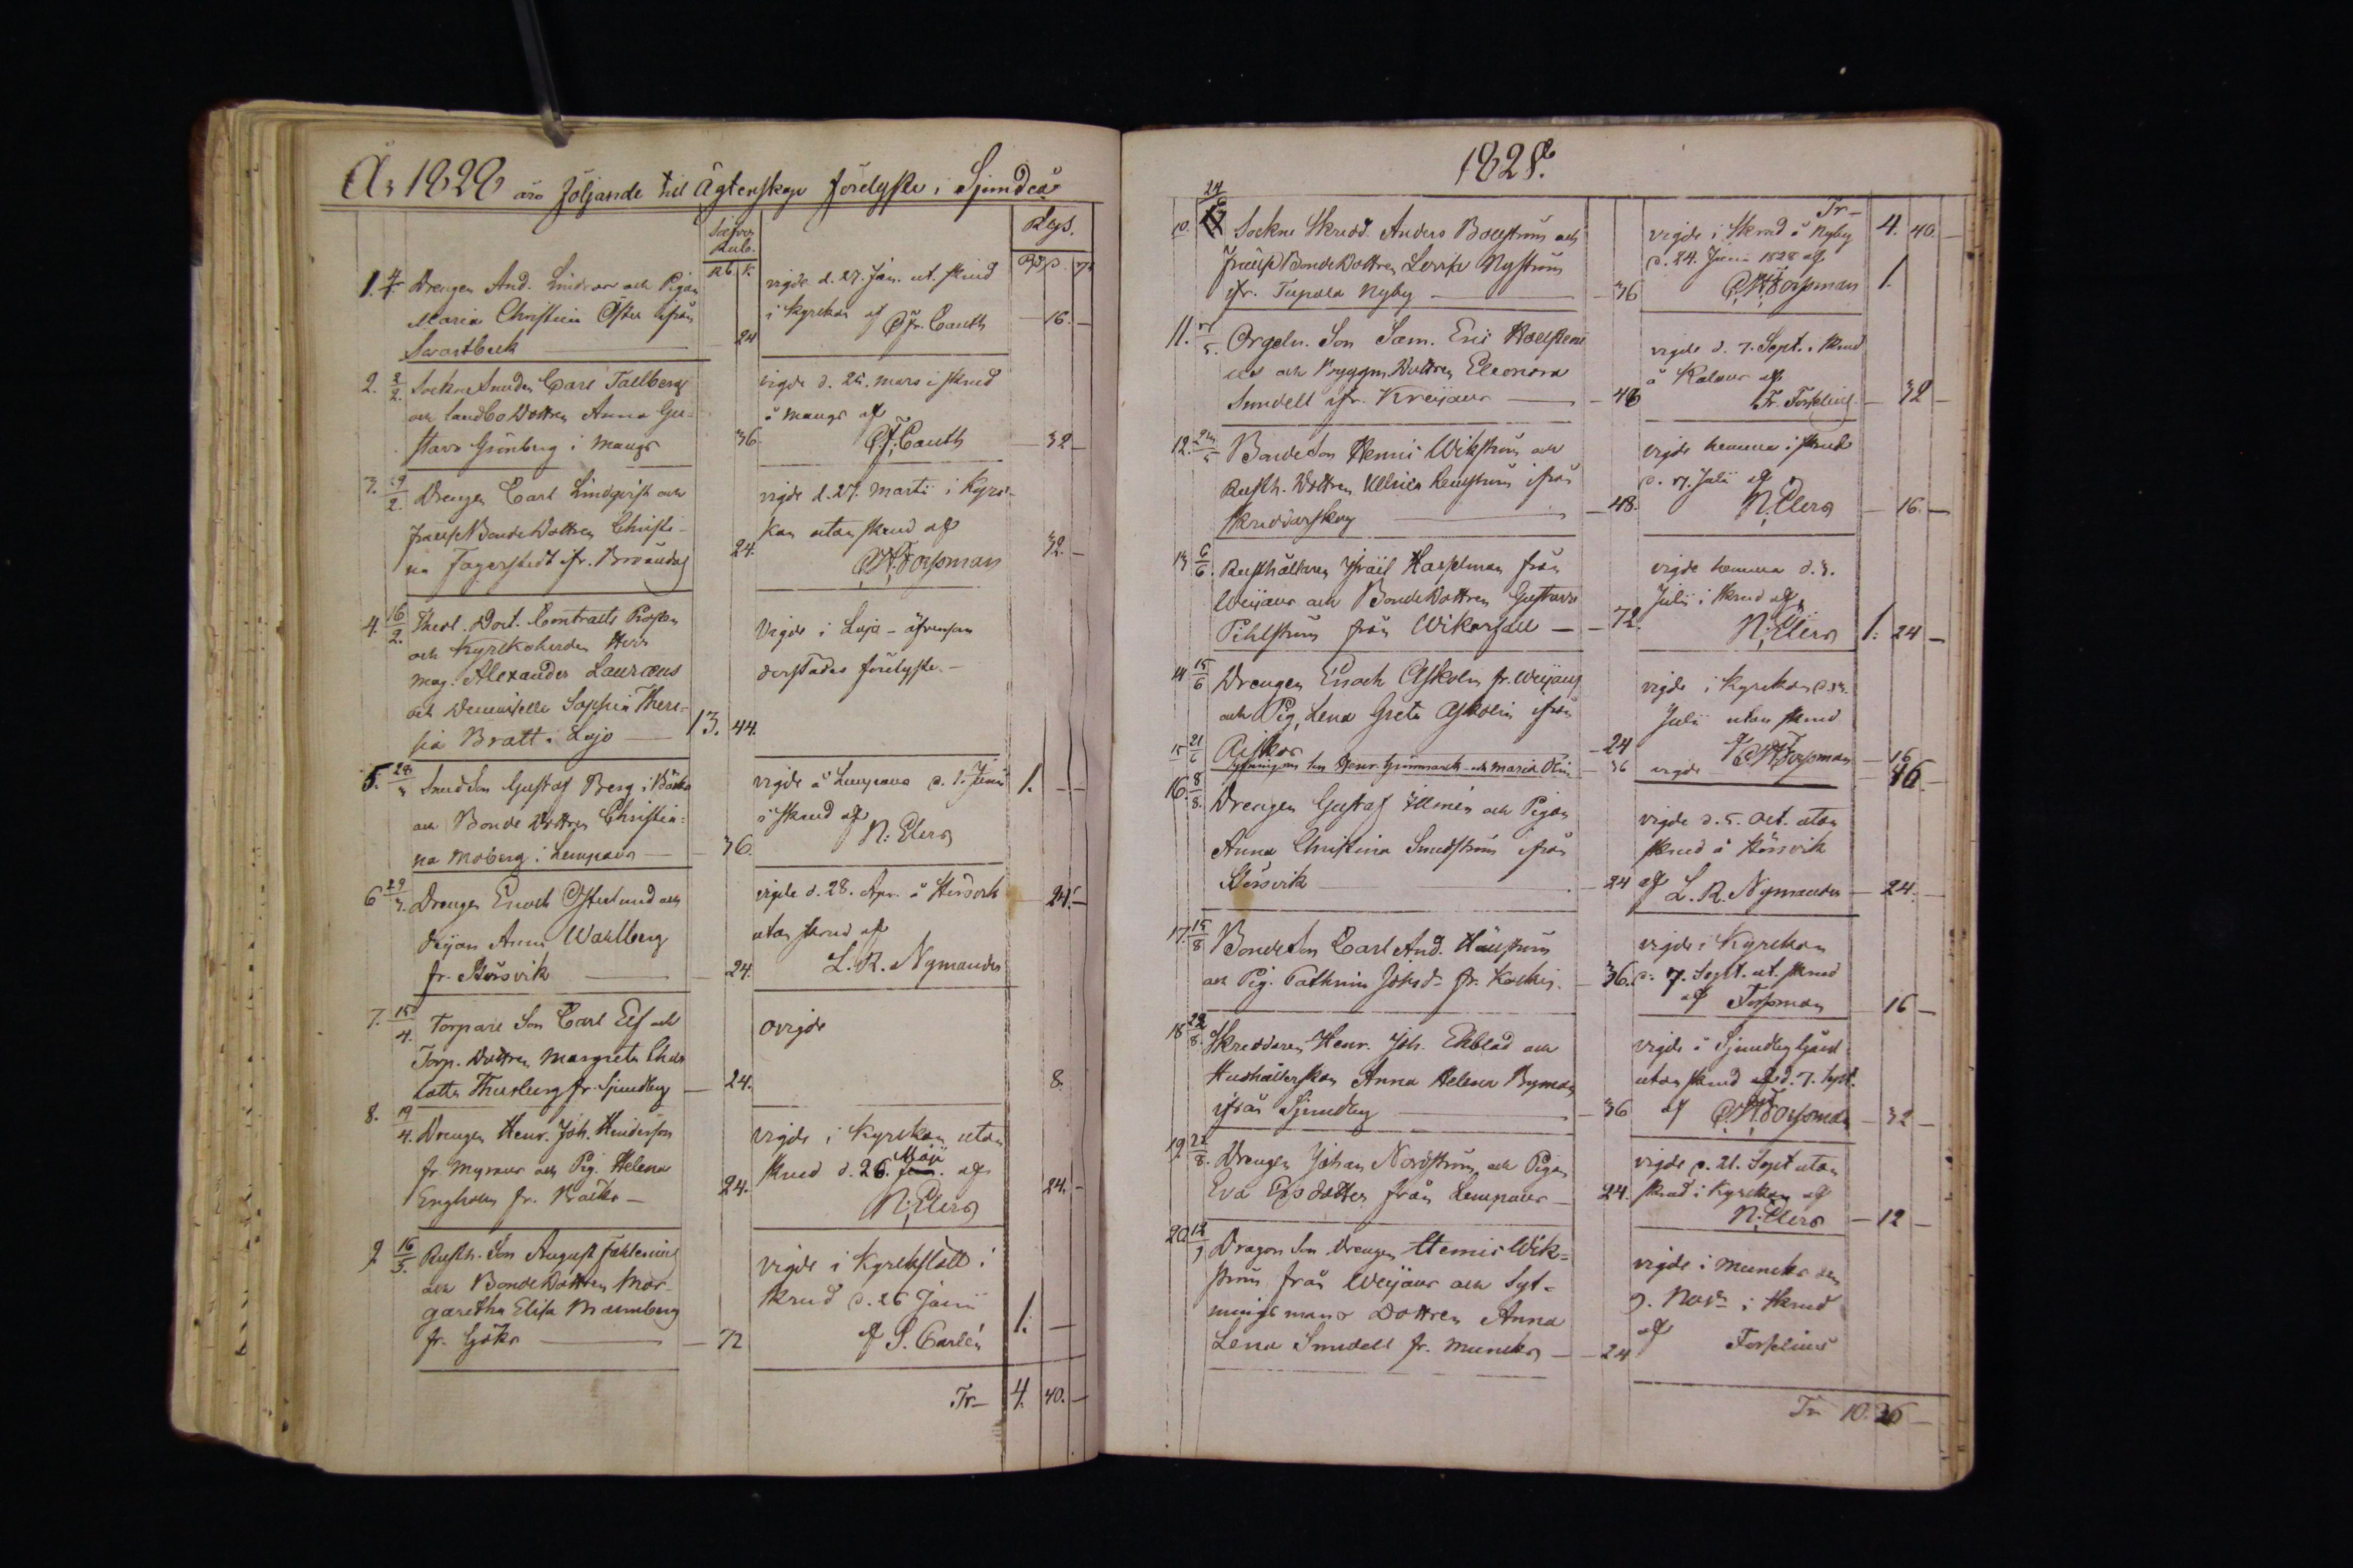 År 1828 äro följande till Ägtenskap förelyste i Sjundeå
Rub.
Rgs.
Rb. K.
1. Drengen And. Lindroos och Pigan
Maria Christina Öster ifrån
Svartbeck — 24
vigde d. 27. Jan. ut. skrud
i kyrckan af
Canth — 16. —
2. Sockne Smeden Carl Tallberg
och landbo Dottren Anna Gu-
stava Grönberg i Mangs 36.
vigde d. 25. mars i skrud
å Mangs af
Canth — 32 —
3. 19/2. Drengen Carl Lindqvist och
frälse Bonde Dottren Christi-
na Fagerstedt ifr. 24.
vigde d. 27. Martii i Kyrc-
kan utan skrud af
Forsman 32. —
4. 16/2. Theol. Doct. Contracts Prosten
och Kyrkoherden Herr
Mag. Alexander Lauræus
och Demoiselle Sophia There-
sia Bratt i Lojo — 13. 44.
Vigde i Lojo - äfvensom
derstädes förelyste. —
5. 28/3 Smed Son Gustaf Berg i Bäcks
och Bonde Dottren Christi-
na Moberg i Lempans — 36.
vigde å Lempans d. 1. Junii
i skrud af
N: Elers 1. — —
6 29/3. Drengen Enoch Österlund och
Pigan Anna Wahlberg
fr. Störsvik — 24.
vigde d. 28. Apr. å Störsvik
utan skrud af
L. R. Nymander 24. —
7. 15/4. Torpare Son Carl Elf och
Torp. Dottren Margreta Char
lotta Thusberg fr. Sjundby — 24.
ovigde 8.
8. 19/4. Drengen Henr. Joh. Hindersson
fr. Myrans och Pig. Helena
Engholm fr. Bäcks — 24.
vigde i Kyrckan utan
Maji
skrud d. 26. af
N: Elers 24. —
9 16/5. Rusth. Son August Fahlenius
och Bonde Dottren Mar-
garetha Elisa Malmberg
fr. Göks — 72
vigde i Kyrckslätt i
skrud d. 26 Junii
af S. Carlén 1. —
Tr— 4. 40. —
1828.
Tr— 4. 40. —
10. Sockne Skredd. Anders Bollström och
frälse Bonde Dottren Lovisa Nyström
ifr. Tupala Nyby — 36
vigde i skrud å Nyby
d. 24. Junii 1828 af
Forsman 1.
11. Orgeln. Son Sam. Eric Hollsteni
us och Byggm. Dottren Eleonora
Sundell ifr. Kreijans — 48
vigde d. 7. Sept. i skrud
å Kalans af
Fr. Forselius — 32 —
12. Bonde Son Hemric Wikström och
Rusth. Dottren Ulrica Lenström ifrån
Skreddarskog — 48.
vigde hemma i skrud
d. 17. Julii af
N: Elers — 16. —
13 6/6. Rusthållaren Israil Hasselman från
Weijans och Bonde Dottren Gustava
Pihlström från Wikarsall — 72.
vigde hemma d. 3.
Julii i skrud af
N: Elers 1. 24 —
14 15/6 Drengen Enoch Askolin fr. Weijans
och Pig. Lena Greta Askolin ifrån
— 24
vigde i Kyrckan
Julii utan skrud
af Forsman — 16
15 21/6 Henr. och Maria — 36
vigde 16 —
16. 8/8. Drengen Gustaf Illmén och Pigan
Anna Christina Smedström ifrån
Störsvik — 24
vigde d. 5. Oct. utan
skrud å Störsvik
af L. R. Nymander — 24. —
17. 15/8 Bonde Son Carl And. Hällström
och Pig. Cathrina Johsdr fr. Kockis. — 36.
vigde i Kyrckan
d. 7. Sept. ut. skrud
af Forsman — 16 —
18 22/8. Skreddaren Henr. Joh. Ekblad och
Hushållerskan Anna Helena Byman
ifrån Sjundby — 36
vigde å Sjundby Gård
utan skrud d. 7. Sept.
af Forsman — 32 —
19 22/8. Drengen Johan Nordström och Pigan
Eva Ersdotter från Lempans — 24.
vigde d. 21. Sept utan
skrud i Kyrckan af
N: Elers — 12 —
20 12/9 Dragon Son Drengen Hemric Wik-
ström från Weijans och Syt-
ningsmans Dottren Anna
Lena Sundell fr. Muncks — 24
vigde i Muncks den
9. Novr i skrud
af Forselius
Tr 10. 36 —